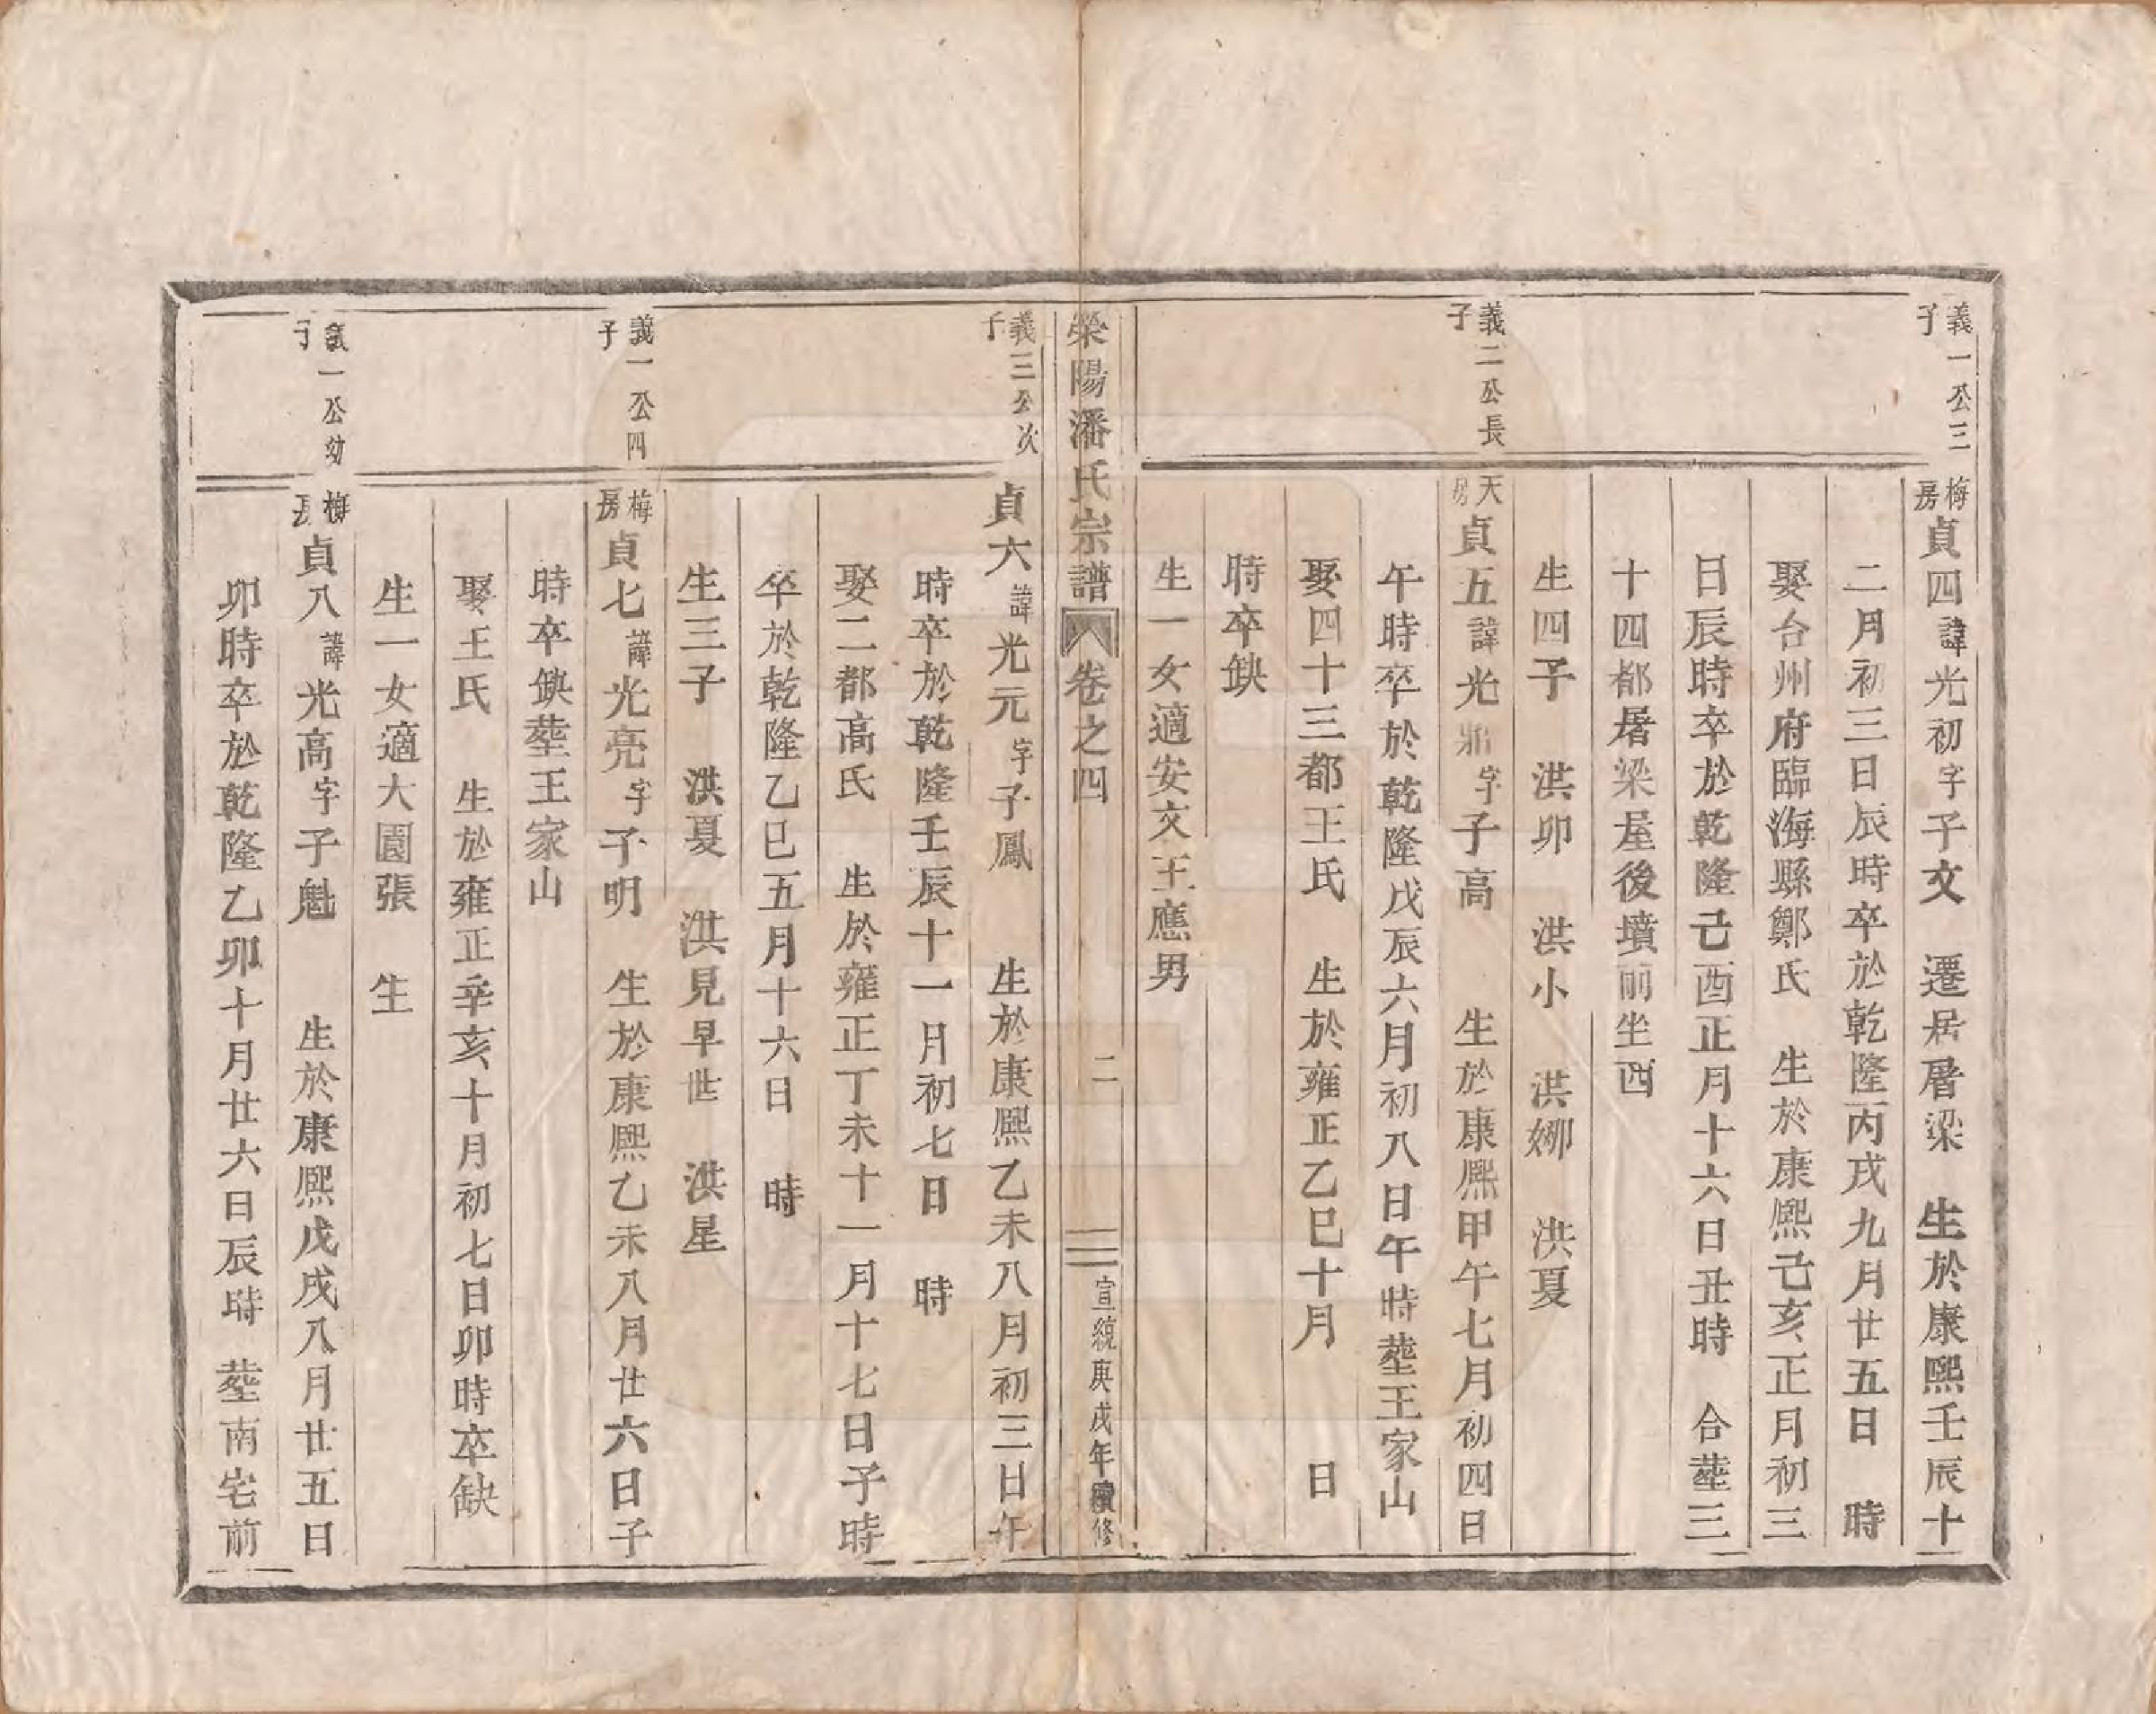 義一公三子
梅房貞四諱光初字子文 遷居屠梁 生於康熙壬辰十
二月初三日辰時卒於乾隆丙戌九月廿五日 時
娶台州府臨海縣鄭氏 生於康熙己亥正月初三
日辰時卒於乾隆己酉正月十六日丑時 合塟三
十四都屠梁屋後墳前坐西
生四子 洪卯 洪小 洪㛹 洪夏
義二公長子
天房貞五諱光 字子高 生於康熙甲午七月初四日
午時卒於乾隆戊辰六月初八日午時塟王家山
娶四十三都王氏 生於雍正乙巳十月 日
時卒缺
生一女適安文王應男
滎陽潘氏宗譜 卷之四 二 宣統庚戌年續修
義三公次子
貞六諱光元字子鳳 生於康熙乙未八月初三日午
時卒於乾隆壬辰十一月初七日 時
娶二都高氏 生於雍正丁未十一月十七日子時
卒於乾隆乙巳五月十六日 時
生三子 洪夏 洪見早世 洪星
義一公四子
梅房貞七諱光亮字子明 生於康熙乙未八月廿六日子
時卒缺塟王家山
娶王氏 生於雍正辛亥十月初七日卯時卒缺
生一女適大園張 生
義一公幼子
梅房貞八諱光高字子魁 生於康熙戊戌八月廿五日
卯時卒於乾隆乙卯十月廿六日辰時 塟南宅前